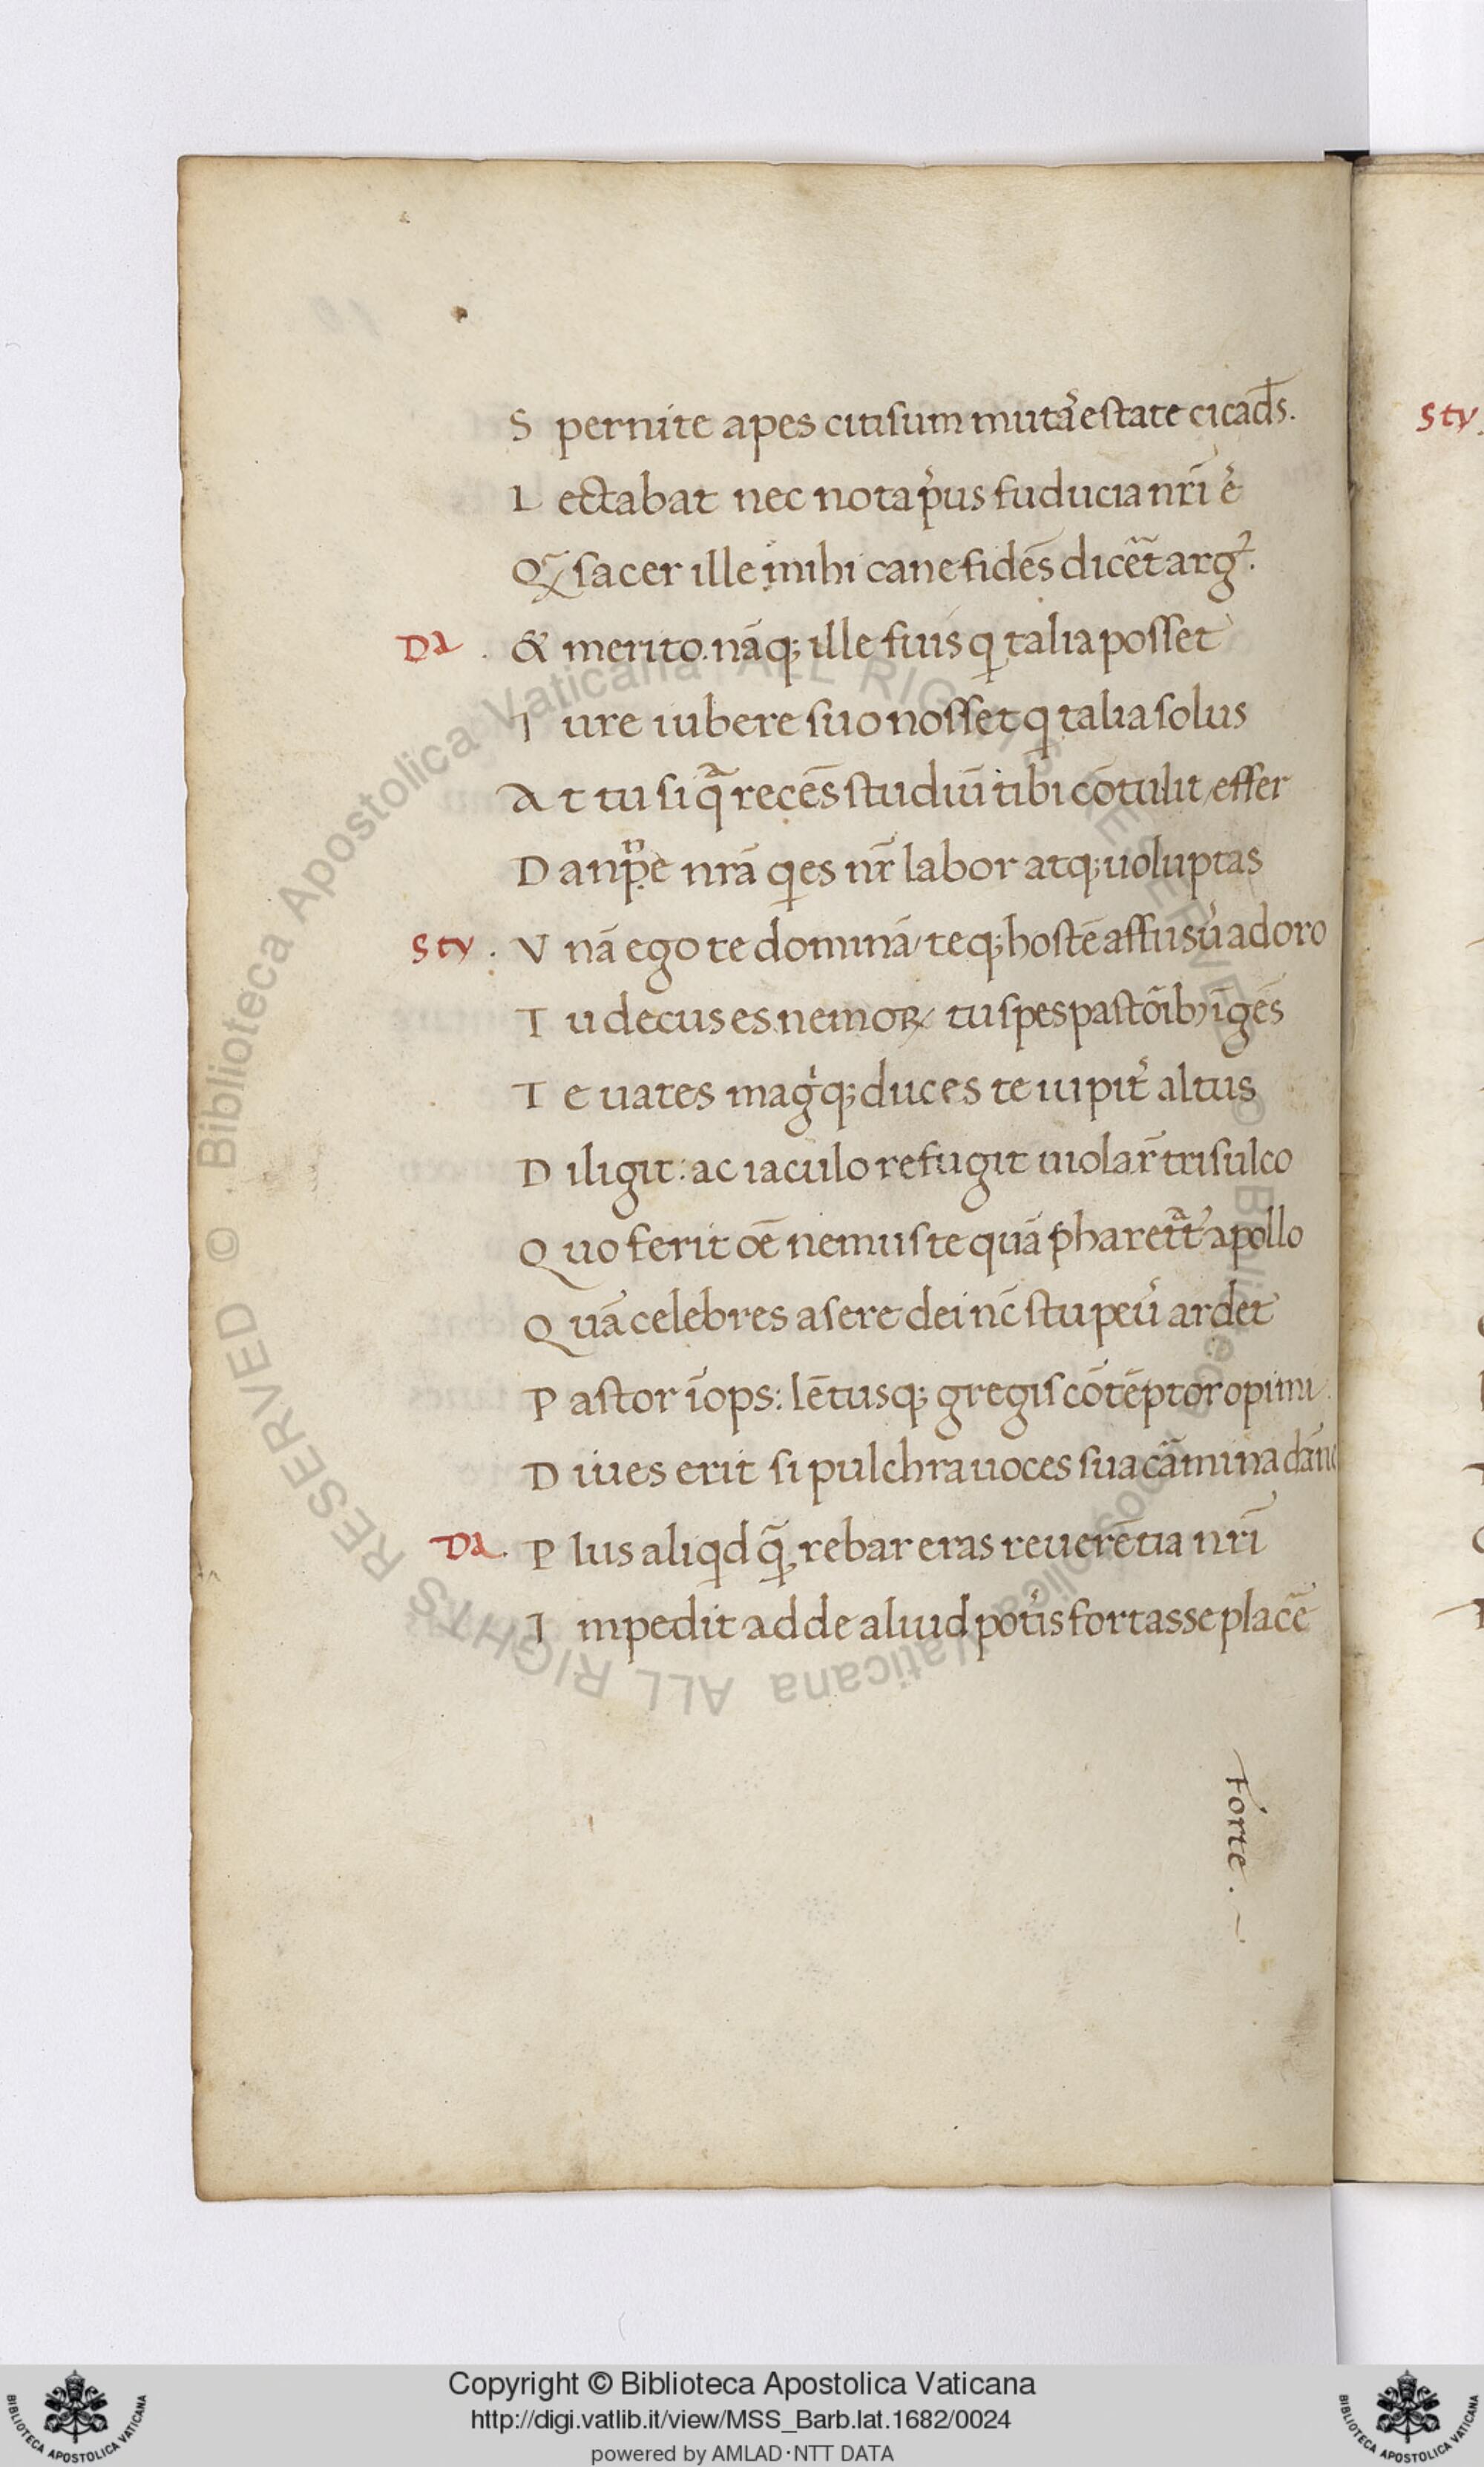 S pernite apes citisum mutãr estate cicad̃s.
L ectabat nec nota p̃us fuducia nr̃i ẽ
Qꝫ sacer ille mihi cane fidẽs dicẽt arg̃.
Da . & merito. nãqꝫ ille fuis q talia posset
I ure iubere suo nosset q talia solus
A t tu si q̃ recẽs studiũ tibi cõtulit / effer
D a np̃e nrã qes nr̃ labor atqꝫ uoluptas
Sty . V nã ego te dominã / teqꝫ hostẽ affusũ adoro
T u decus es nemoꝝ / tu spes pastõribꝰ ĩgẽs
T e uates mag̃qꝫ duces te iupit̃ altus
D iligit : ac iaculo refugit uiolar̃ trisulco
Q uo ferit oẽ nemus te quã pharetr̃t apollo
Q uã celebres asere dei nc̃ stupeũ ardet
P astor ĩops : lẽtusqꝫ gregis cõtẽptor opimi .
D iues erit si pulchra uoces sua cãmina dãne
Da . P lus aliqd q̃ rebar eras reuerẽtia nr̃i
I mpedit adde aliud pot̃is fortasse placẽ
Forte . ~
Sty .
© Biblioteca Apostolica Vaticana ALL RIGHTS RESERVED
Copyright © Biblioteca Apostolica Vaticana
http://digi.vatlib.it/view/MSS_Barb.lat.1682/0024
powered by AMLAD·NTT DATA
BIBLIOTECA APOSTOLICA VATICANA
BIBLIOTECA APOSTOLICA VATICANA